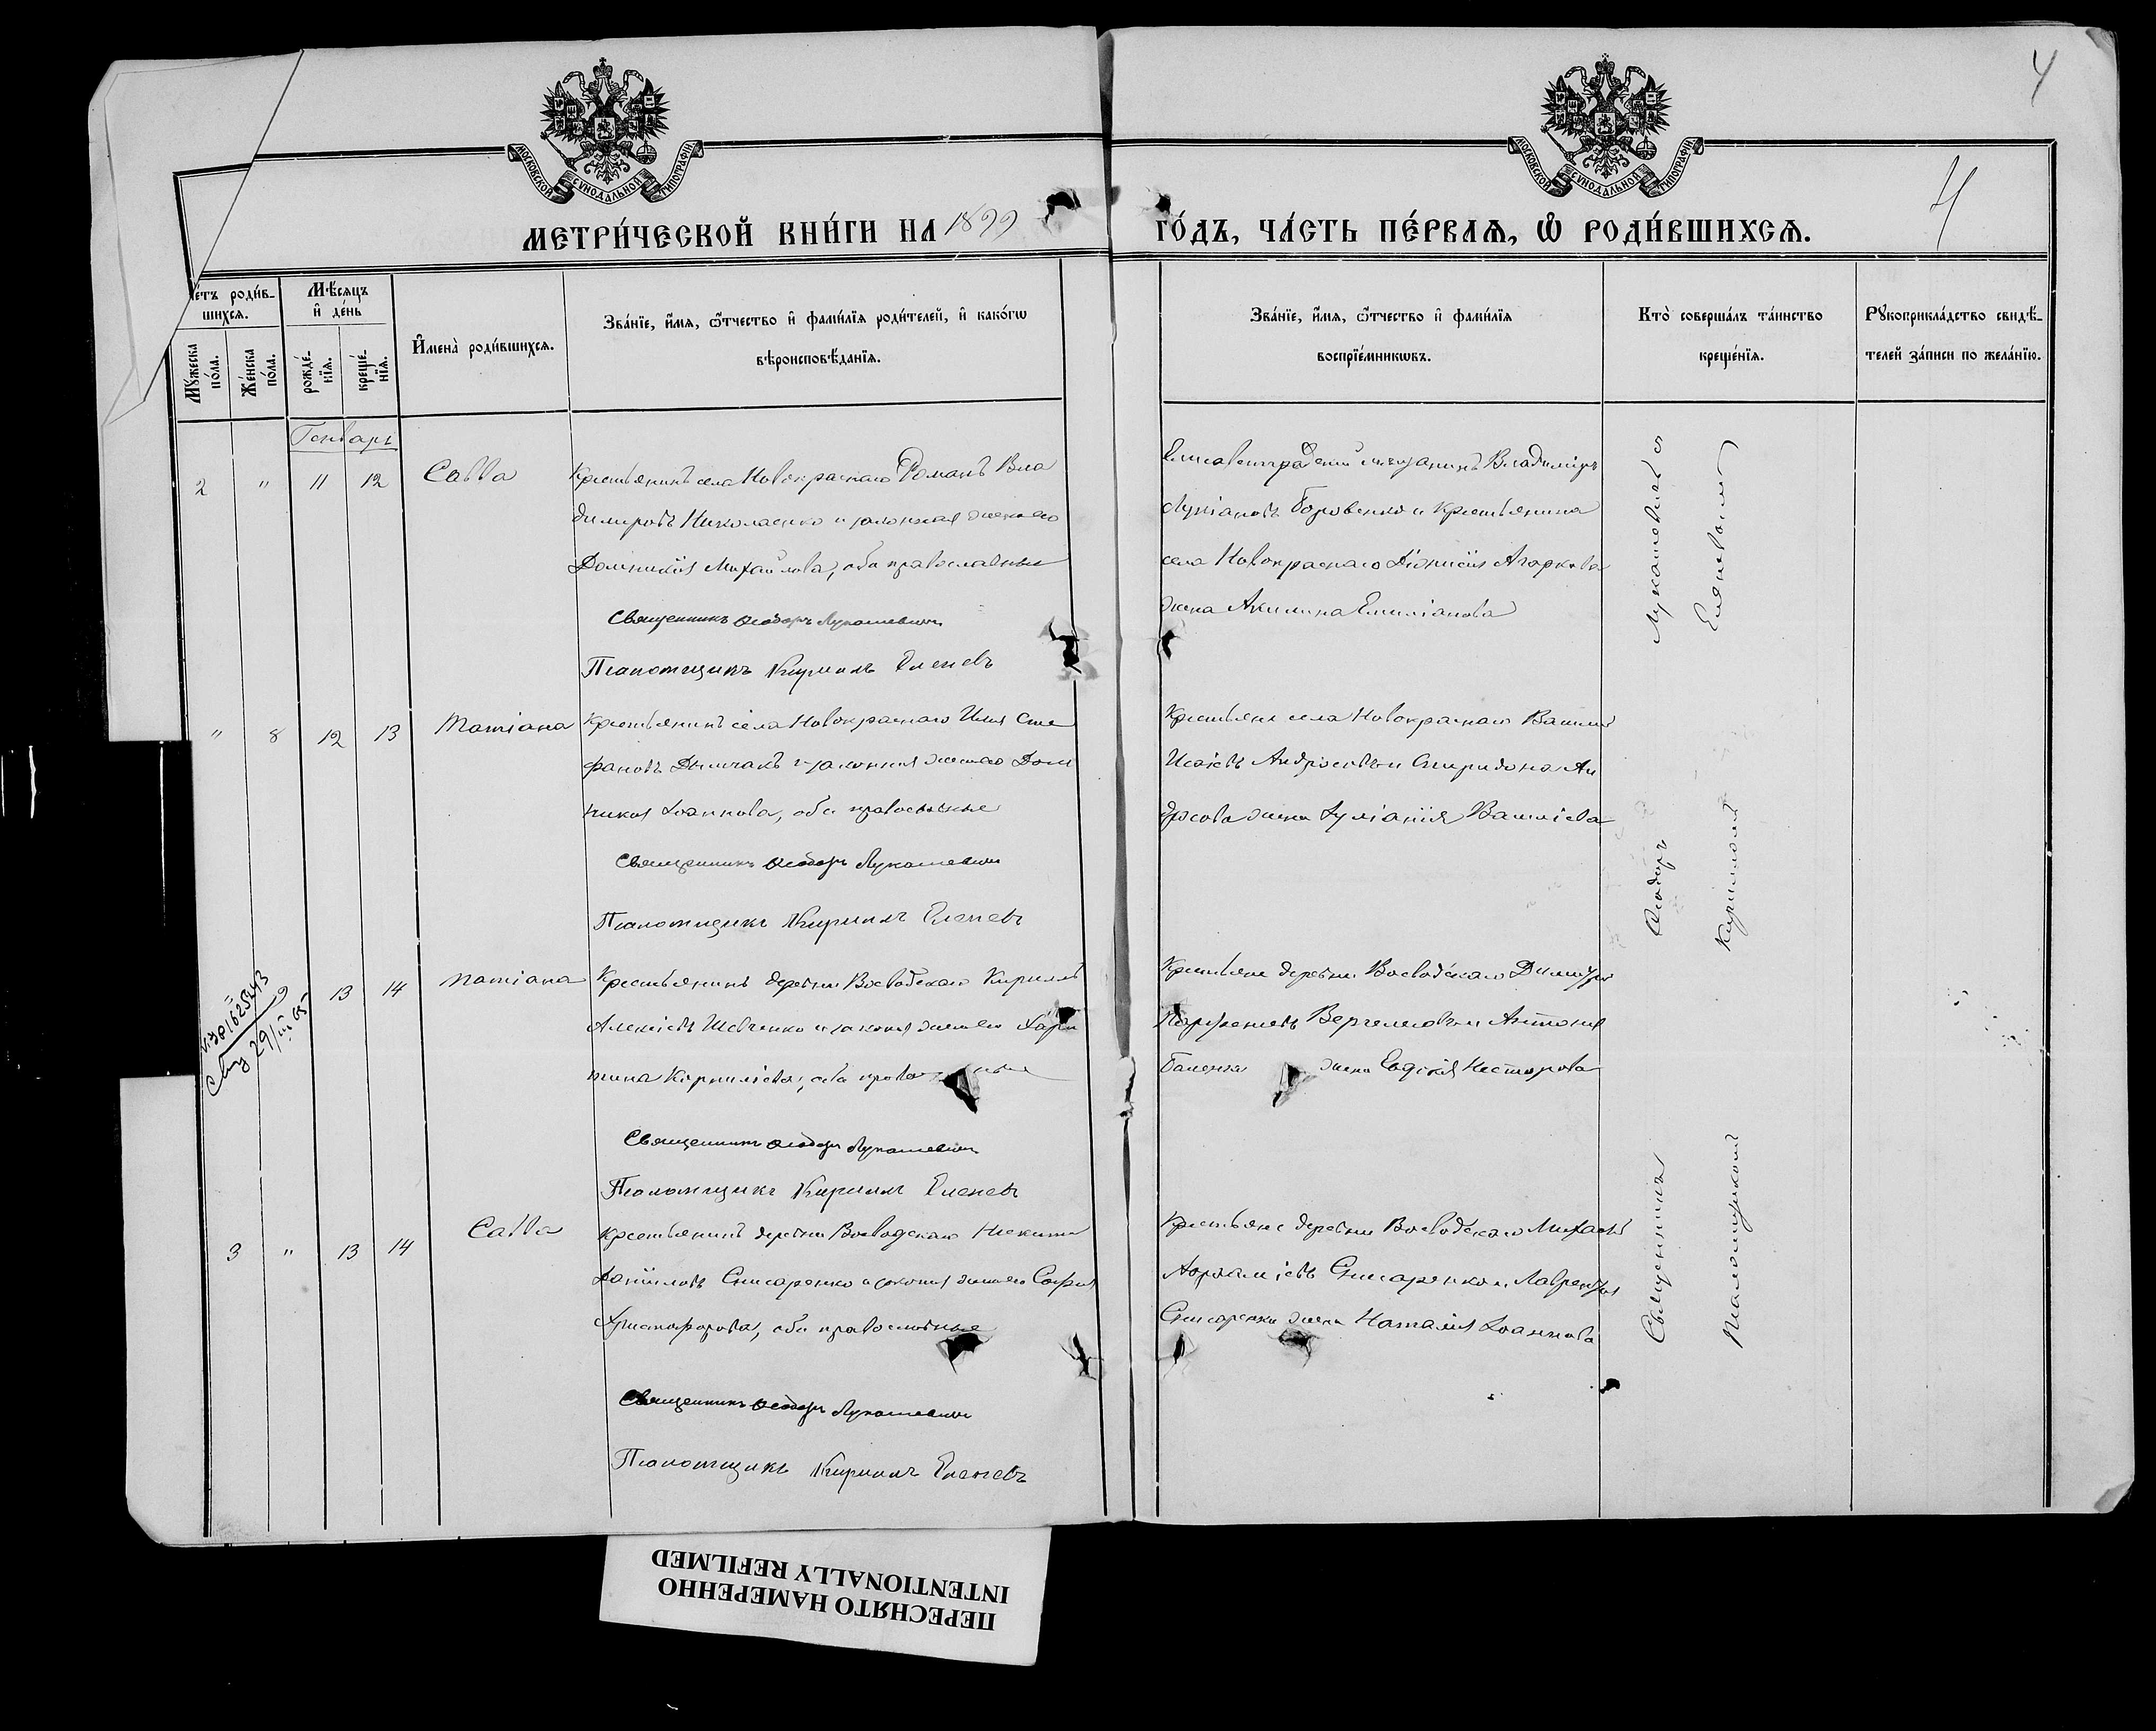 4
МОСКОВСКОЙ СѴНОДАЛЬНОЙ ТИПОГРАФІИ
МОСКОВСКОЙ СѴНОДАЛЬНОЙ ТИПОГРАФІИ
МЕТРИ́ЧЕСКОЙ КНИ́ГИ НА 1899
ГО́ДЪ, ЧА́СТЬ ПЕ́РВАѦ, Ѽ РОДИ́ВШИХСѦ.
4
роди́в-
шихсѧ.
Мѣ́сѧцъ
и҆ де́нь
Мꙋ́жеска
по́ла.
Же́нска
по́ла.
рожде́-
нїѧ.
креще́-
нїѧ.
И҆мена̀ роди́вшихсѧ.
Зва́нїе, и҆́мѧ, ѻ҆́тчество и҆ фами́лїѧ роди́телей, и҆ како́гѡ
вѣроисповѣ́данїѧ.
Зва́нїе, и҆́мѧ, ѻ҆́тчество и҆ фами́лїѧ
воспрїе́мникѡвъ.
Кто̀ соверша́лъ та́инство
креще́нїѧ.
Рꙋкоприкла́дство свидѣ́-
телей за́писи по жела́нїю.
Генварь
2 " 11 12 Савва
Крестьянинъ села Новокраснаго Романъ Вла
димировъ Николаенко и законная жена его
Домникія Михайлова, оба православные
Священникъ Ѳеодоръ Лукашевичъ
Псаломщикъ Кириллъ Еленевъ
Елисаветградский мещанинъ Владимиръ
Лукіановъ Боровенко и крестьянина
села Новокраснаго Діонисія Агаркова
жена Акилина Емиліанова
" 8 12 13 Татіана
Крестьянинъ села Новокраснаго Илія Сте
фановъ Дымчакъ и законная жена его Дом
никія Іоаннова, оба православные
Священникъ Ѳеодоръ Лукашевичъ
Псаломщикъ Кириллъ Еленевъ
Крестьяне села Новокраснаго Василій
Исаіевъ Андросовъ и Спиридона Ан
дросова жена Іуліанія Василіева
" 9 13 14 Татіана
Крестьянинъ деревни Воеводскаго Кириллъ
Алексіевъ Шевченко и законная жена его Хари
тина Корниліева, оба
Священникъ Ѳеодоръ Лукашевичъ
Псаломщикъ Кириллъ Еленевъ
Крестьяне деревни Воеводскаго Димитрій
жена Евдокія Несторова
3 " 13 14 Савва
Крестьянинъ деревни Воеводскаго Никита
Даніиловъ Снисаренко и законная жена его Софія
Христофорова, оба православные
Священникъ Ѳеодоръ Лукашевичъ
Псаломщикъ Кириллъ Еленевъ
Крестьяне деревни Воеводскаго Михаилъ
Авраміевъ Снисаренко и Лаврентія
Снисаренка жена Наталія Іоаннова
Священникъ Ѳеодоръ Лукашевичъ съ
Псаломщикомъ Кирилломъ Еленевымъ
ПЕРЕСНЯТО НАМЕРЕННО
INTENTIONALLY REFILMED